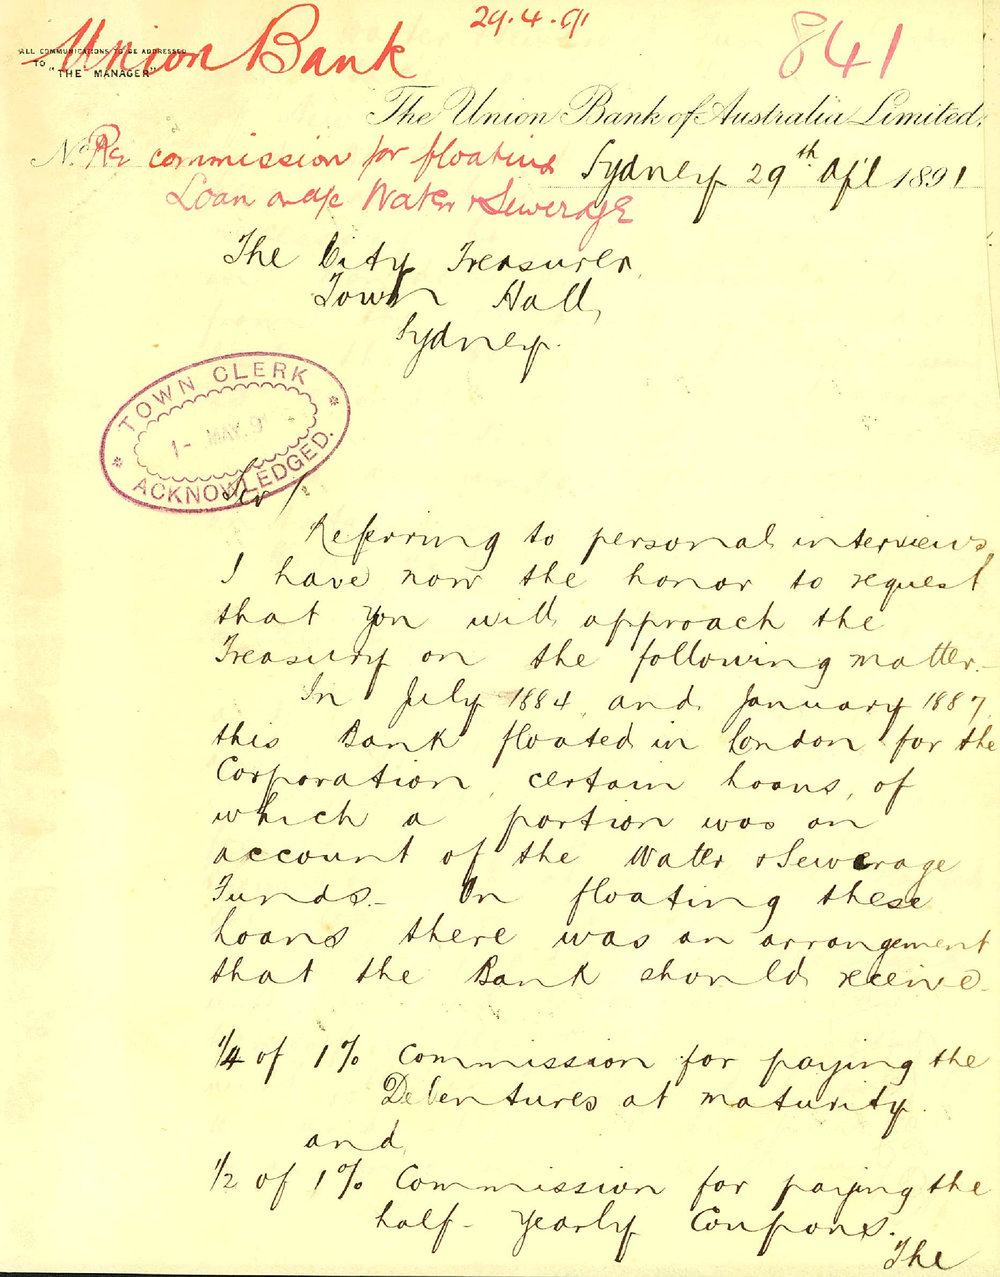 29.4.91
841
Union Bank
ALL COMMUNICATIONS TO BE ADDRESSED
TO "THE MANAGER"
The Union Bank of Australia Limited.
No.
Re commission for floating
Loan on a/c Water & Sewerage
Sydney 29th Apl 1891
The City Treasurer,
Town Hall,
Sydney.
TOWN CLERK
1- MAY.91
ACKNOWLEDGED.
Sir/
Referring to personal interviews,
I have now the honor to request
that you will approach the
Treasury on the following matter.-
In July 1884, and January 1887,
this Bank floated in London for the
Corporation, certain Loans, of
which a portion was on
account of the Water & Sewerage
Funds.- In floating these
Loans there was an arrangement
that the Bank should receive.
1/4 of 1% Commission for paying the
Debentures at maturity.
and
1/2 of 1% Commission for paying the
half-yearly Coupons.
The